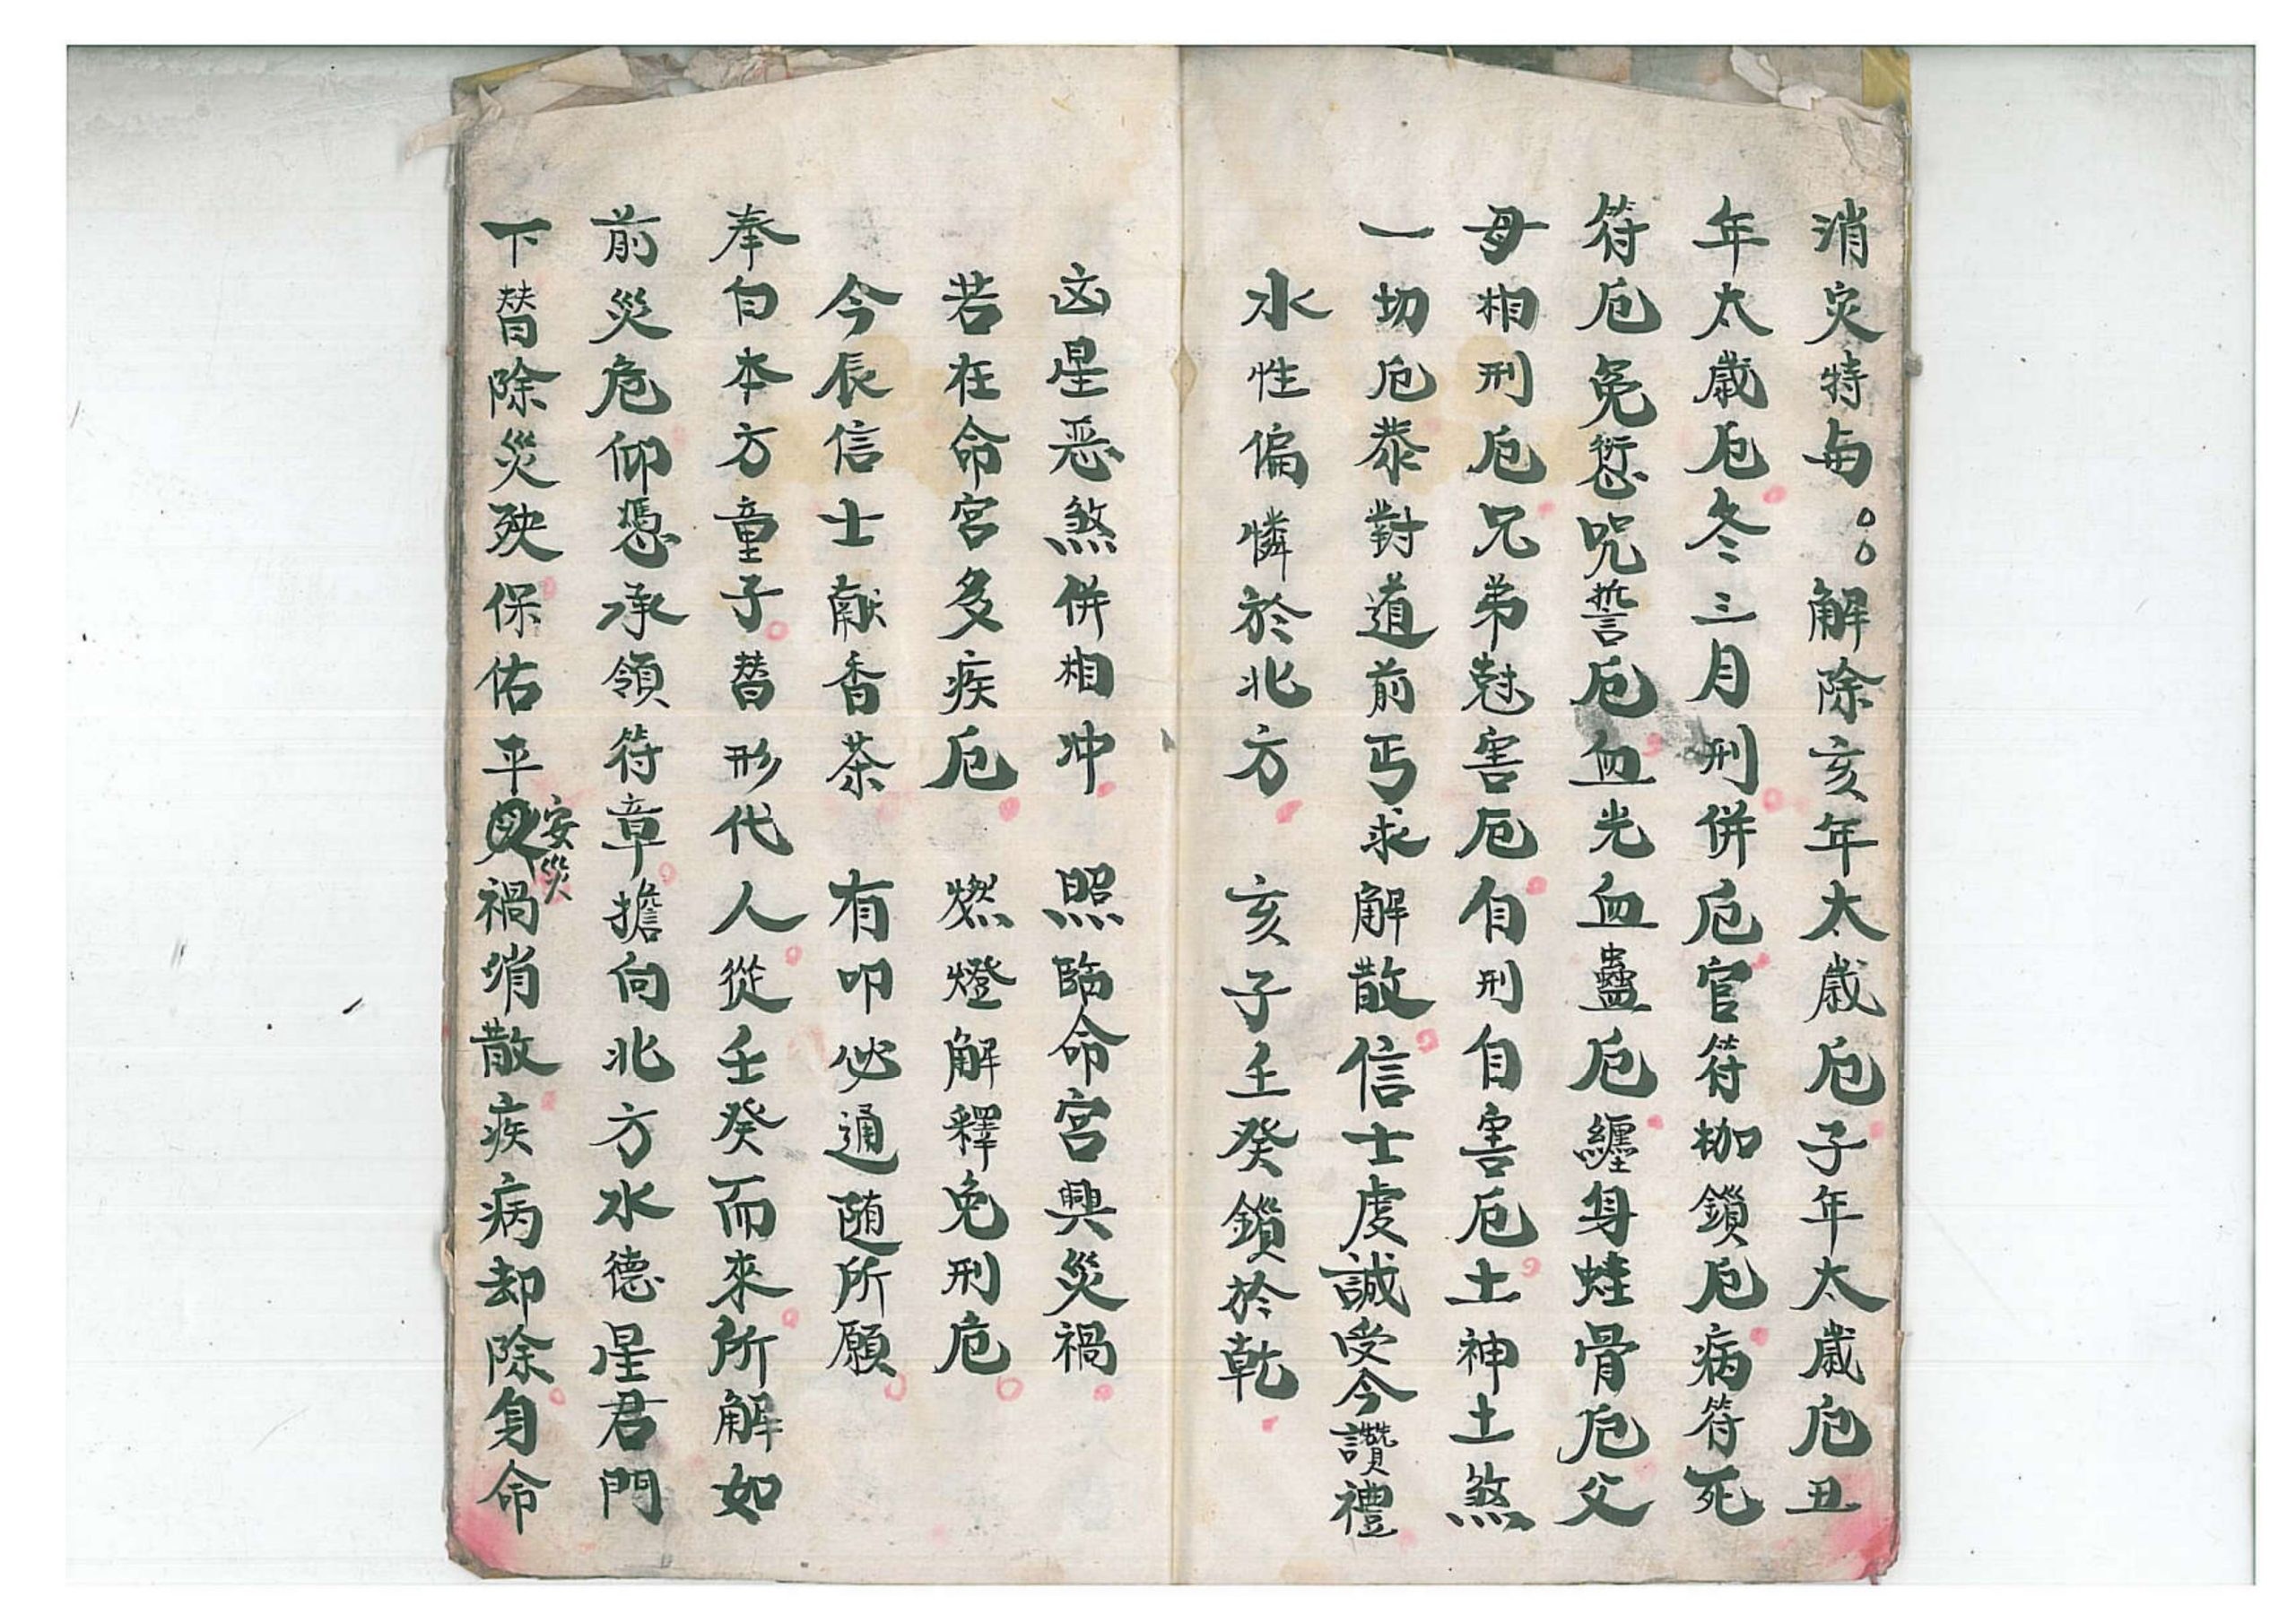 消灾特与○○解除亥年太歲厄子年太歲厄丑
年太歲厄冬三月刑併厄官符枷鎖厄病符死
符厄免愆咒誓厄血光血蠱厄纏身蛀骨厄父
母相刑厄兄弟尅害厄自刑自害厄土神土煞
一切厄恭對道前丐求解散信士虔誠受今讚禮
水性偏憐於北方 亥子壬癸鎖於乾
凶星恶煞併相冲 照臨命宮興災禍
若在命宮多疾厄 燃燈解釋免刑危
今辰信士献香茶 有叩必通随所願
奉白本方童子替形代人從壬癸而來所解如
前災危仰憑承領符章擔向北方水德星君門
下替除災殃保佑平安災禍消散疾病却除身命